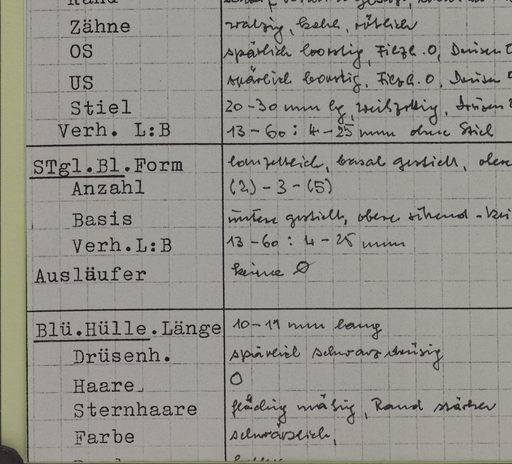 Zähne warzig, kahl, rötlich
OS spärlich borstig, Filzh. O, Drüsen
US spärlich borstig, Filzh. O, Drüsen
Stiel 20-30 mm lg, weißzottig, Drüsen
Verh. L:B 13-60 : 4-25 mm ohne Stiel
STgl.Bl.Form lanzettlich, basal gestielt, obere
Anzahl (2)-3-(5)
Basis untere gestielt, obere sitzend -
Verh.L:B 13-60 : 4-25 mm
Ausläufer keine Ø
Blü.Hülle.Länge 10-11 mm lang
Drüsenh. spärlich schwarzdrüsig
Haare O
Sternhaare flächig mäßig, Rand stärker
Farbe schwärzlich,